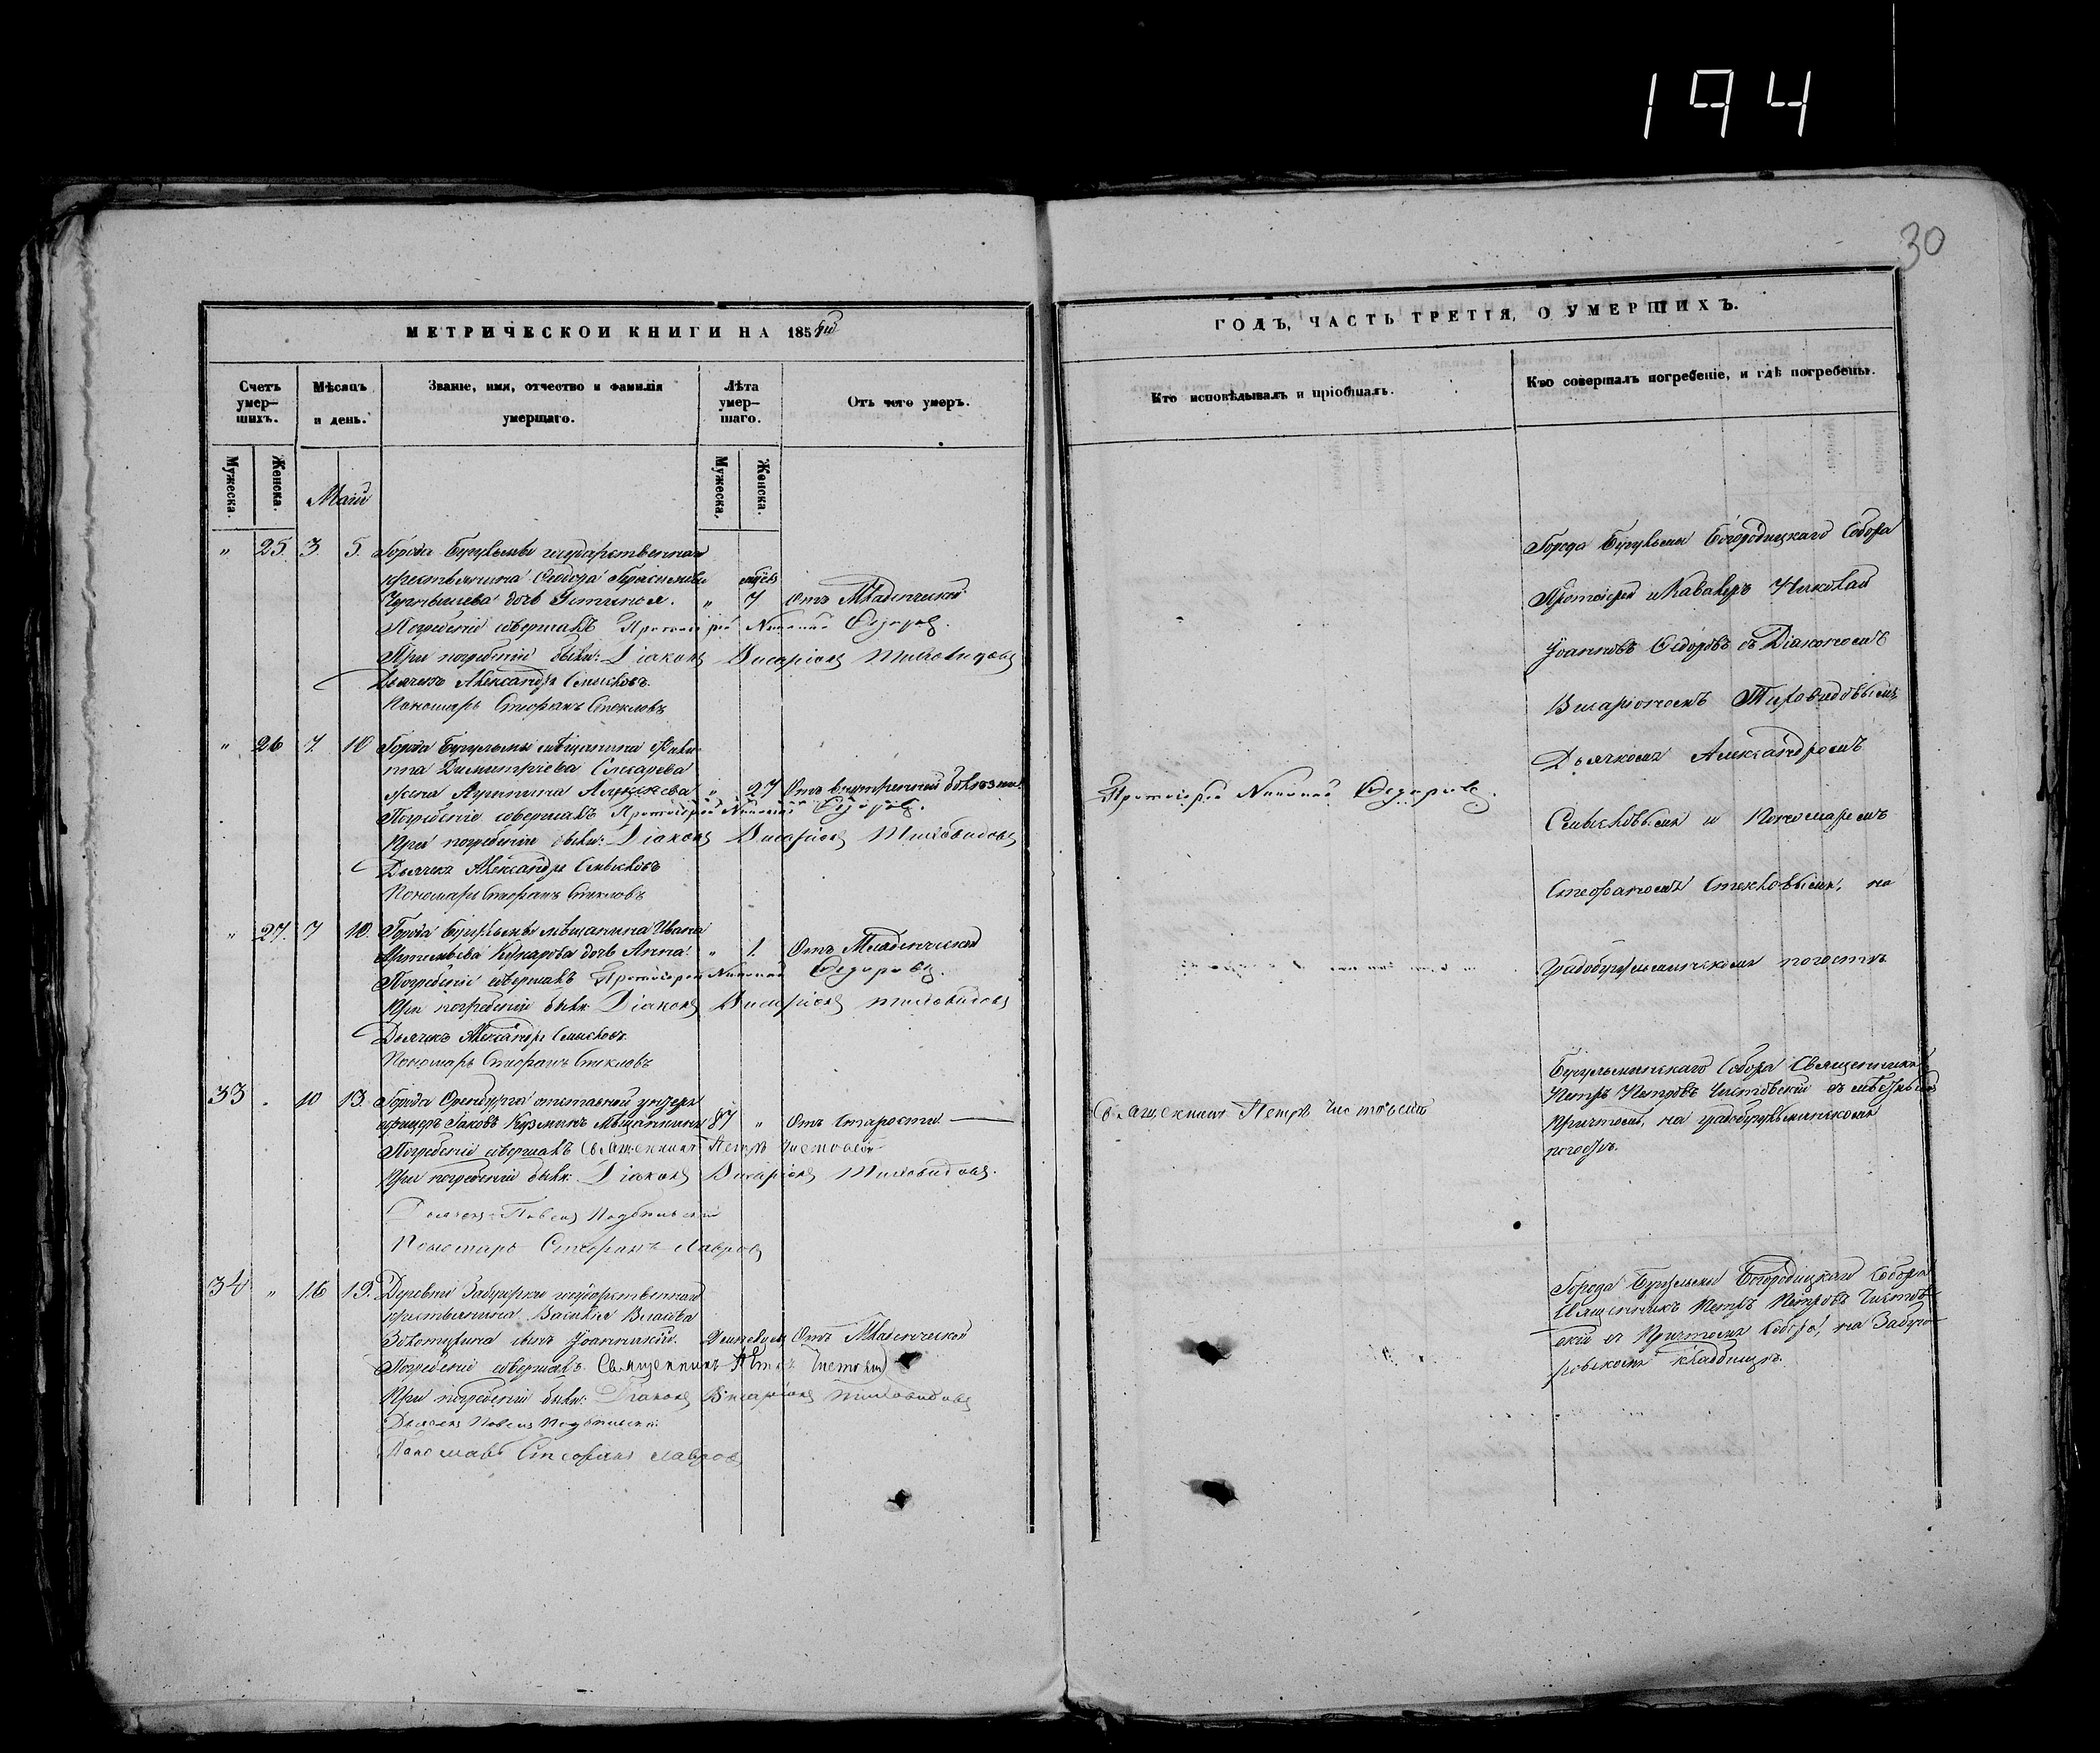 194
30
МЕТРИЧЕСКОЙ КНИГИ НА 185
ГОДЪ, ЧАСТЬ ТРЕТІЯ, О УМЕРШИХЪ.
Счетъ умер-шихъ.
Мѣсяцъ и день.
Званіе, имя, отчество и фамилія умершаго.
Лѣта умер-шаго.
Отъ чего умеръ.
Кто исповѣдывалъ и пріобщалъ.
Кто совершалъ погребеніе, и гдѣ погребены.
Мужеска.
Женска.
Мужеска,
Женска.
Маій
" 25. 3 5. Города Бугульмы государственнаго
крестьянина Ѳеодора
Чернышева дочь Устинія. " 7 Отъ Младенческой
Погребеніе совершалъ Протоіерей Николай Ѳедоровъ.
При погребеніи были: Діаконъ Висаріонъ Тиховидовъ
Дьячекъ Александръ Смысловъ.
Пономарь Стефанъ Стекловъ
" 26 7. 10 Города Бугульмы мѣщанина Фили-
ппа Димитріева Слесарева
жена Агрипина Алексѣева " 27 Отъ внутренней болѣзни
Погребеніе совершалъ Протоіерей Николай Ѳедоровъ.
При погребеніи были: Діаконъ Висаріонъ Тиховидовъ
Дьячекъ Александръ Смысловъ
Пономарь Стефанъ Стекловъ
" 27. 7 10. Города Бугульмы мѣщанина Ивана
Артемьева дочь Анна. " 1. Отъ Младенческой
Погребеніе совершалъ Протоіерей Николай Ѳедоровъ.
При погребеніи были: Діаконъ Висаріонъ Тиховидовъ
Дьячекъ Александръ Смысловъ.
Пономарь Стефанъ Стекловъ
33 " 10 13. Города Оренбурга отставной унтеръ
офицеръ Іаковъ Кузминъ Мѣщанинъ 87 " Отъ старости
Погребеніе совершалъ Священникъ Петръ Чистовской
При погребеніи были: Діаконъ Висаріонъ Тиховидовъ.
Дьячекъ Павелъ
Пономарь Стефанъ Лавровъ
34 " 16 19. Деревни Забугорки государственнаго
крестьянина Василія Власова
Золотухина сынъ Іоанникій. Отъ Младенческой
Погребеніе совершалъ Священникъ Петръ Чистовской
При погребеніи были: Діаконъ Висаріонъ Тиховидовъ
Дьячекъ Павелъ
Пономарь Стефанъ Лавровъ
Протоіерей Николай Ѳедоровъ.
Священникъ Петръ Чистовской
Города Бугульмы Богородицкаго Собора
Протоіерей и Кавалеръ Николай
Іоанновъ Ѳедоровъ съ Діакономъ
Висаріономъ Тиховидовымъ
Дьячкомъ Александромъ
Смысловымъ и Пономаремъ
Стефаномъ Стекловымъ, на
Градобугульминскомъ погостѣ
Бугульминскаго Собора Священникъ
Петръ Петровъ Чистовской съ мѣстнымъ
Причтомъ, на градобугульминскомъ
погостѣ.
Города Бугульмы Богородицкаго Собора
Священникъ Петръ Петровъ Чистов-
ской съ Причтомъ Собора, на Забуго-
ровскомъ кладбищѣ.